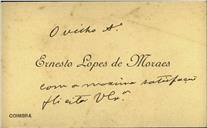 O velho Aº
Ernesto Lopes de Moraes
com a maxima satisfação
flicita V.
COIMBRA